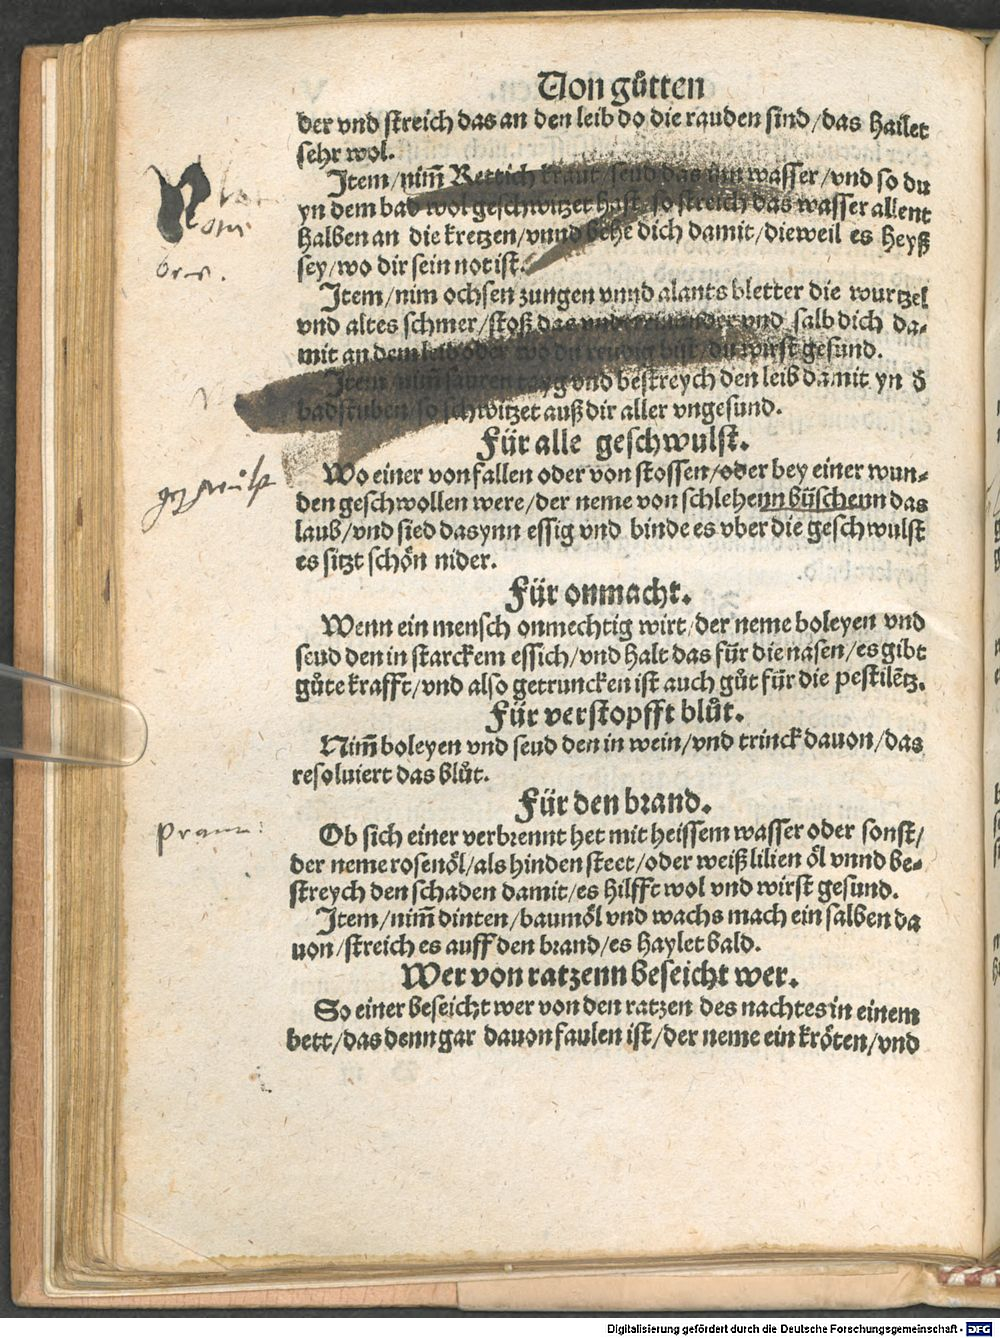 Von guͤtten
der vnd streich das an den leib do die rauden sind/das hailet
sehr wol.
Item/nim̃ Rettich kraut/seud das inn wasser/vnd so du
yn dem bad wol geschwitzet hast/so streich das wasser allent
halben an die kretzen/vnnd behe dich damit/dieweil es heyß
sey/wo dir sein not ist.
Item/nim ochsen zungen vnnd alants bletter die wurtzel
vnd altes schmer/stoß das vnder einander vnd salb dich da-
mit an dem leib oder wo du reudig bist/du wirst gesund.
Item nim̃ sauren tayg vnd bestreych den leib damit yn d̄
badstuben/so schwitzet auß dir aller vngesund.
Für alle geschwulst.
geschwulst
Wo einer von fallen oder von stossen/oder bey einer wun-
den geschwollen were/der neme von schlehenn büschenn das
laub/vnd sied das ynn essig vnd binde es vber die geschwulst
es sitzt schön nider.
Für onmacht.
Wenn ein mensch onmechtig wirt/der neme boleyen vnd
seud den in starckem essich/vnd halt das für die nasen/es gibt
guͤte krafft/vnd also getruncken ist auch guͦt für die pestilẽtz.
Für verstopfft bluͦt.
Nim̃ boleyen vnd seud den in wein/vnd trinck dauon/das
resoluiert das bluͦt.
Für den brand.
prann:
Ob sich einer verbrennt het mit heissem wasser oder sonst/
der neme rosenöl/als hinden steet/oder weiß lilien öl vnnd be-
streych den schaden damit/es hilfft wol vnd wirst gesund.
Item/nim̃ dinten/baumöl vnd wachs mach ein salben da
uon/streich es auff den brand/es haylet bald.
Wer von ratzenn beseicht wer.
So einer beseicht wer von den ratzen des nachtes in einem
bett/das denn gar dauon faulen ist/der neme ein kröten/vnd
Digitalisierung gefördert durch die Deutsche Forschungsgemeinschaft - DFG